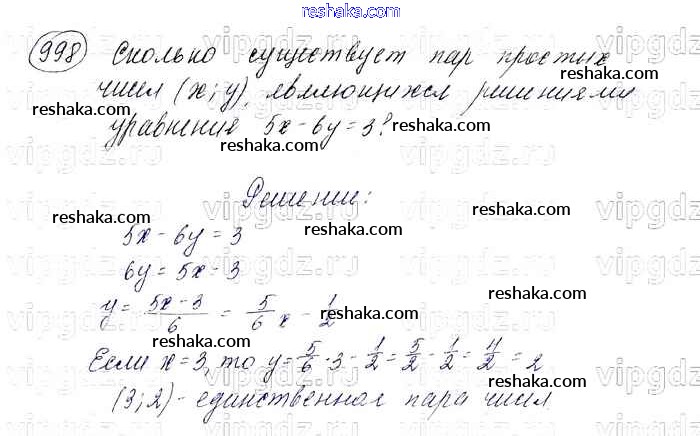 reshaka.com
998 Сколько существует пар простых
чисел (x; y), являющихся решениями
уравнения 5x - 6y = 3?
Решение:
5x - 6y = 3
6y = 5x - 3
y = (5x - 3)/6 = 5/6 x - 1/2
Если x = 3, то y = 5/6 · 3 - 1/2 = 5/2 - 1/2 = 4/2 = 2
(3; 2) - единственная пара чисел
reshaka.com
reshaka.com
reshaka.com
reshaka.com
reshaka.com
reshaka.com
reshaka.com
reshaka.com
reshaka.com
reshaka.com
reshaka.com
reshaka.com
vipgdz.ru